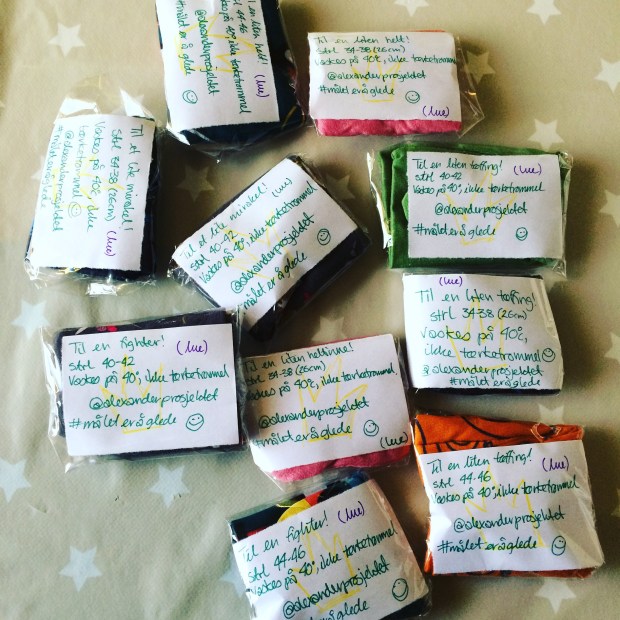 en liten helt!
strl 44-46
Vaskes på 40°, ikke tørketrommel
@alexanderprosjektet
#målet er å glede
(lue)
Til en liten helt!
Strl 34-38 (26cm)
Vaskes på 40°, ikke tørketrommel
@alexanderprosjektet
#målet er å glede
(lue)
Til et lite mirakel!
strl 34-38 (26cm) (lue)
Vaskes på 40°, ikke
tørketrommel
@alexanderprosjektet
#målet er å glede
Til et lite mirakel!
(lue)
strl 40-42
Vaskes på 40°, ikke tørketrommel
@alexanderprosjektet
#målet er å glede
Til en liten tøffing! (lue)
strl 40-42
Vaskes på 40°, ikke tørketrommel
@alexanderprosjektet
#målet er å glede
(lue)
Til en liten tøffing!
strl 34-38 (26cm)
Vaskes på 40°,
ikke tørketrommel
@alexanderprosjektet
#målet er å glede
Til en fighter! (lue)
strl 40-42
Vaskes på 40°, ikke tørketrommel
@alexanderprosjektet
#målet er å glede
Til en liten heltinne!
strl 34-38 (26cm)
Vaskes på 40°, ikke tørketrommel
@alexanderprosjektet
#målet er å glede
(lue)
Til en liten tøffing! (lue)
strl 44-46
Vaskes på 40°, ikke tørketrommel
@alexanderprosjektet
#målet er å glede
Til en fighter! (lue)
Strl 44-46
Vaskes på 40°, ikke tørketrommel
@alexanderprosjektet
#målet er å glede